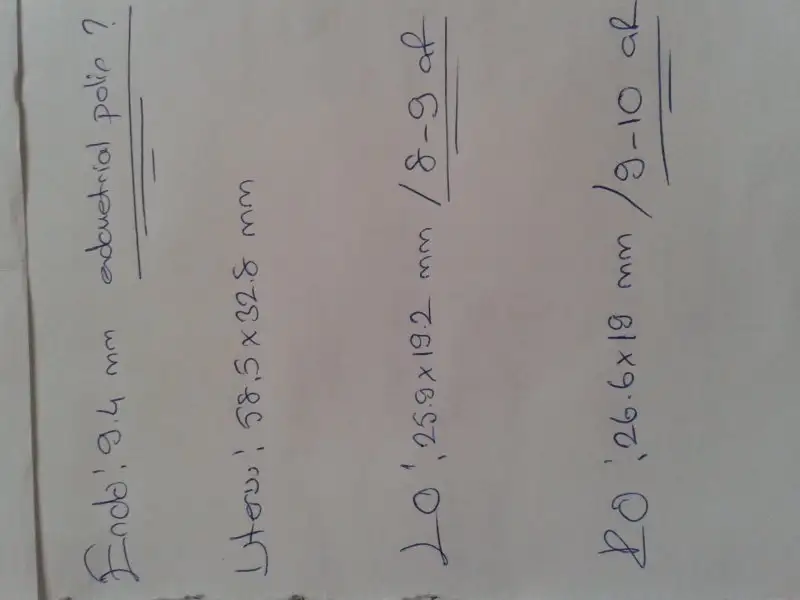 Endo: 9.4 mm endometrial polip?
Uterus: 58.5x32.8 mm
LO: 25.9x19.2 mm / 8-9 af
RO: 26.6x19 mm / 9-10 af